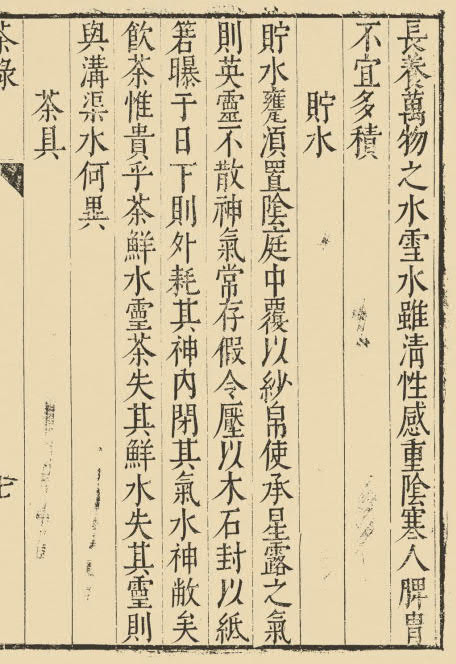 長養萬物之水雪水雖清性感重陰寒人脾胃
不宜多積
貯水
貯水甕湏置陰庭中覆以紗帛使承星露之氣
則英靈不散神氣常存假令壓以木石封以紙
箬曝于日下則外耗其神内閉其氣水神敝矣
飲茶惟貴乎茶鮮水靈茶失其鮮水失其靈則
與溝渠水何異
茶具
茶錄
七